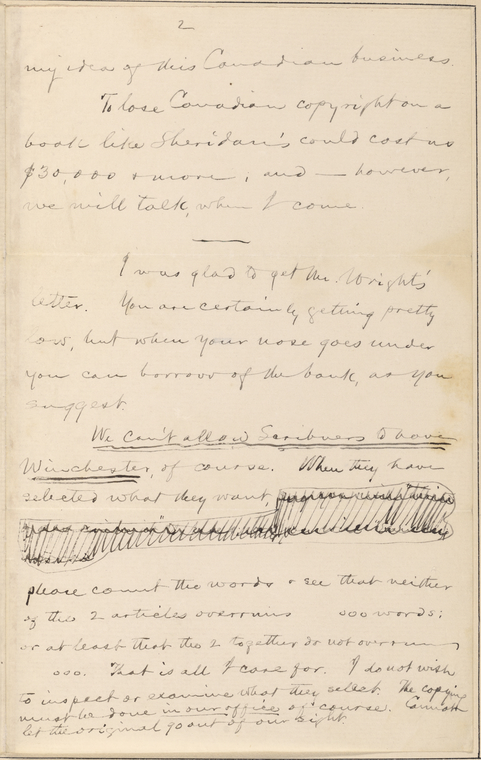 2
my idea of this Canadian business.
To lose Canadian copyright on a
book like Sheridan's could cost us
$30,000 & more; and — however,
we will talk, when I come.
I was glad to get Mr. Wright's
letter. You are certainly getting pretty
low, but when your nose goes under
you can borrow of the bank, as you
suggest.
We can't allow Scribners to have
Winchester, of course. When they have
selected what they want,
please count the words & see that neither
of the 2 articles overruns 000 words;
or at least that the 2 together do not overrun
000. That is all I care for. I do not wish
to inspect or examine what they select. The copying
must be done in our office of course. Cannot
let the original go out of our sight.